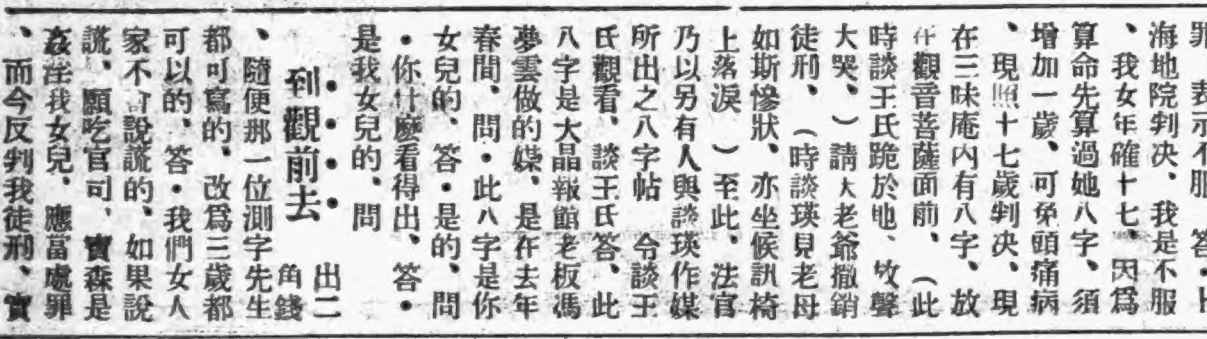 罪、表示不服、答•上
海地院判决、我是不服
、我女年確十七、因爲
算命先算過她八字、須
增加一歲、可免頭痛病
、現照十七歲判决、現
在三昧庵內有八字、放
在觀音菩薩面前、（此
時談王氏跪於地、放聲
大哭、）請大老爺撤銷
徒刑、（時談瑛見老母
如斯慘狀、亦坐候訊椅
上落淚）至此、法官
乃以另有人與談瑛作媒
所出之八字帖　令談王
氏觀看、談王氏答、此
八字是大晶報館老板馮
夢雲做的媒、是在去年
春間、問•此八字是你
女兒的、答•是的、問
•你什麼看得出、答•
是我女兒的、問
到觀前去　出二
角錢
、隨便那一位測字先生
都可寫的、改爲三歲都
可以的、答•我們女人
家不會說謊的、如果說
謊、願吃官司、寶森是
姦淫我女兒、應當處罪
、而今反判我徒刑、寶